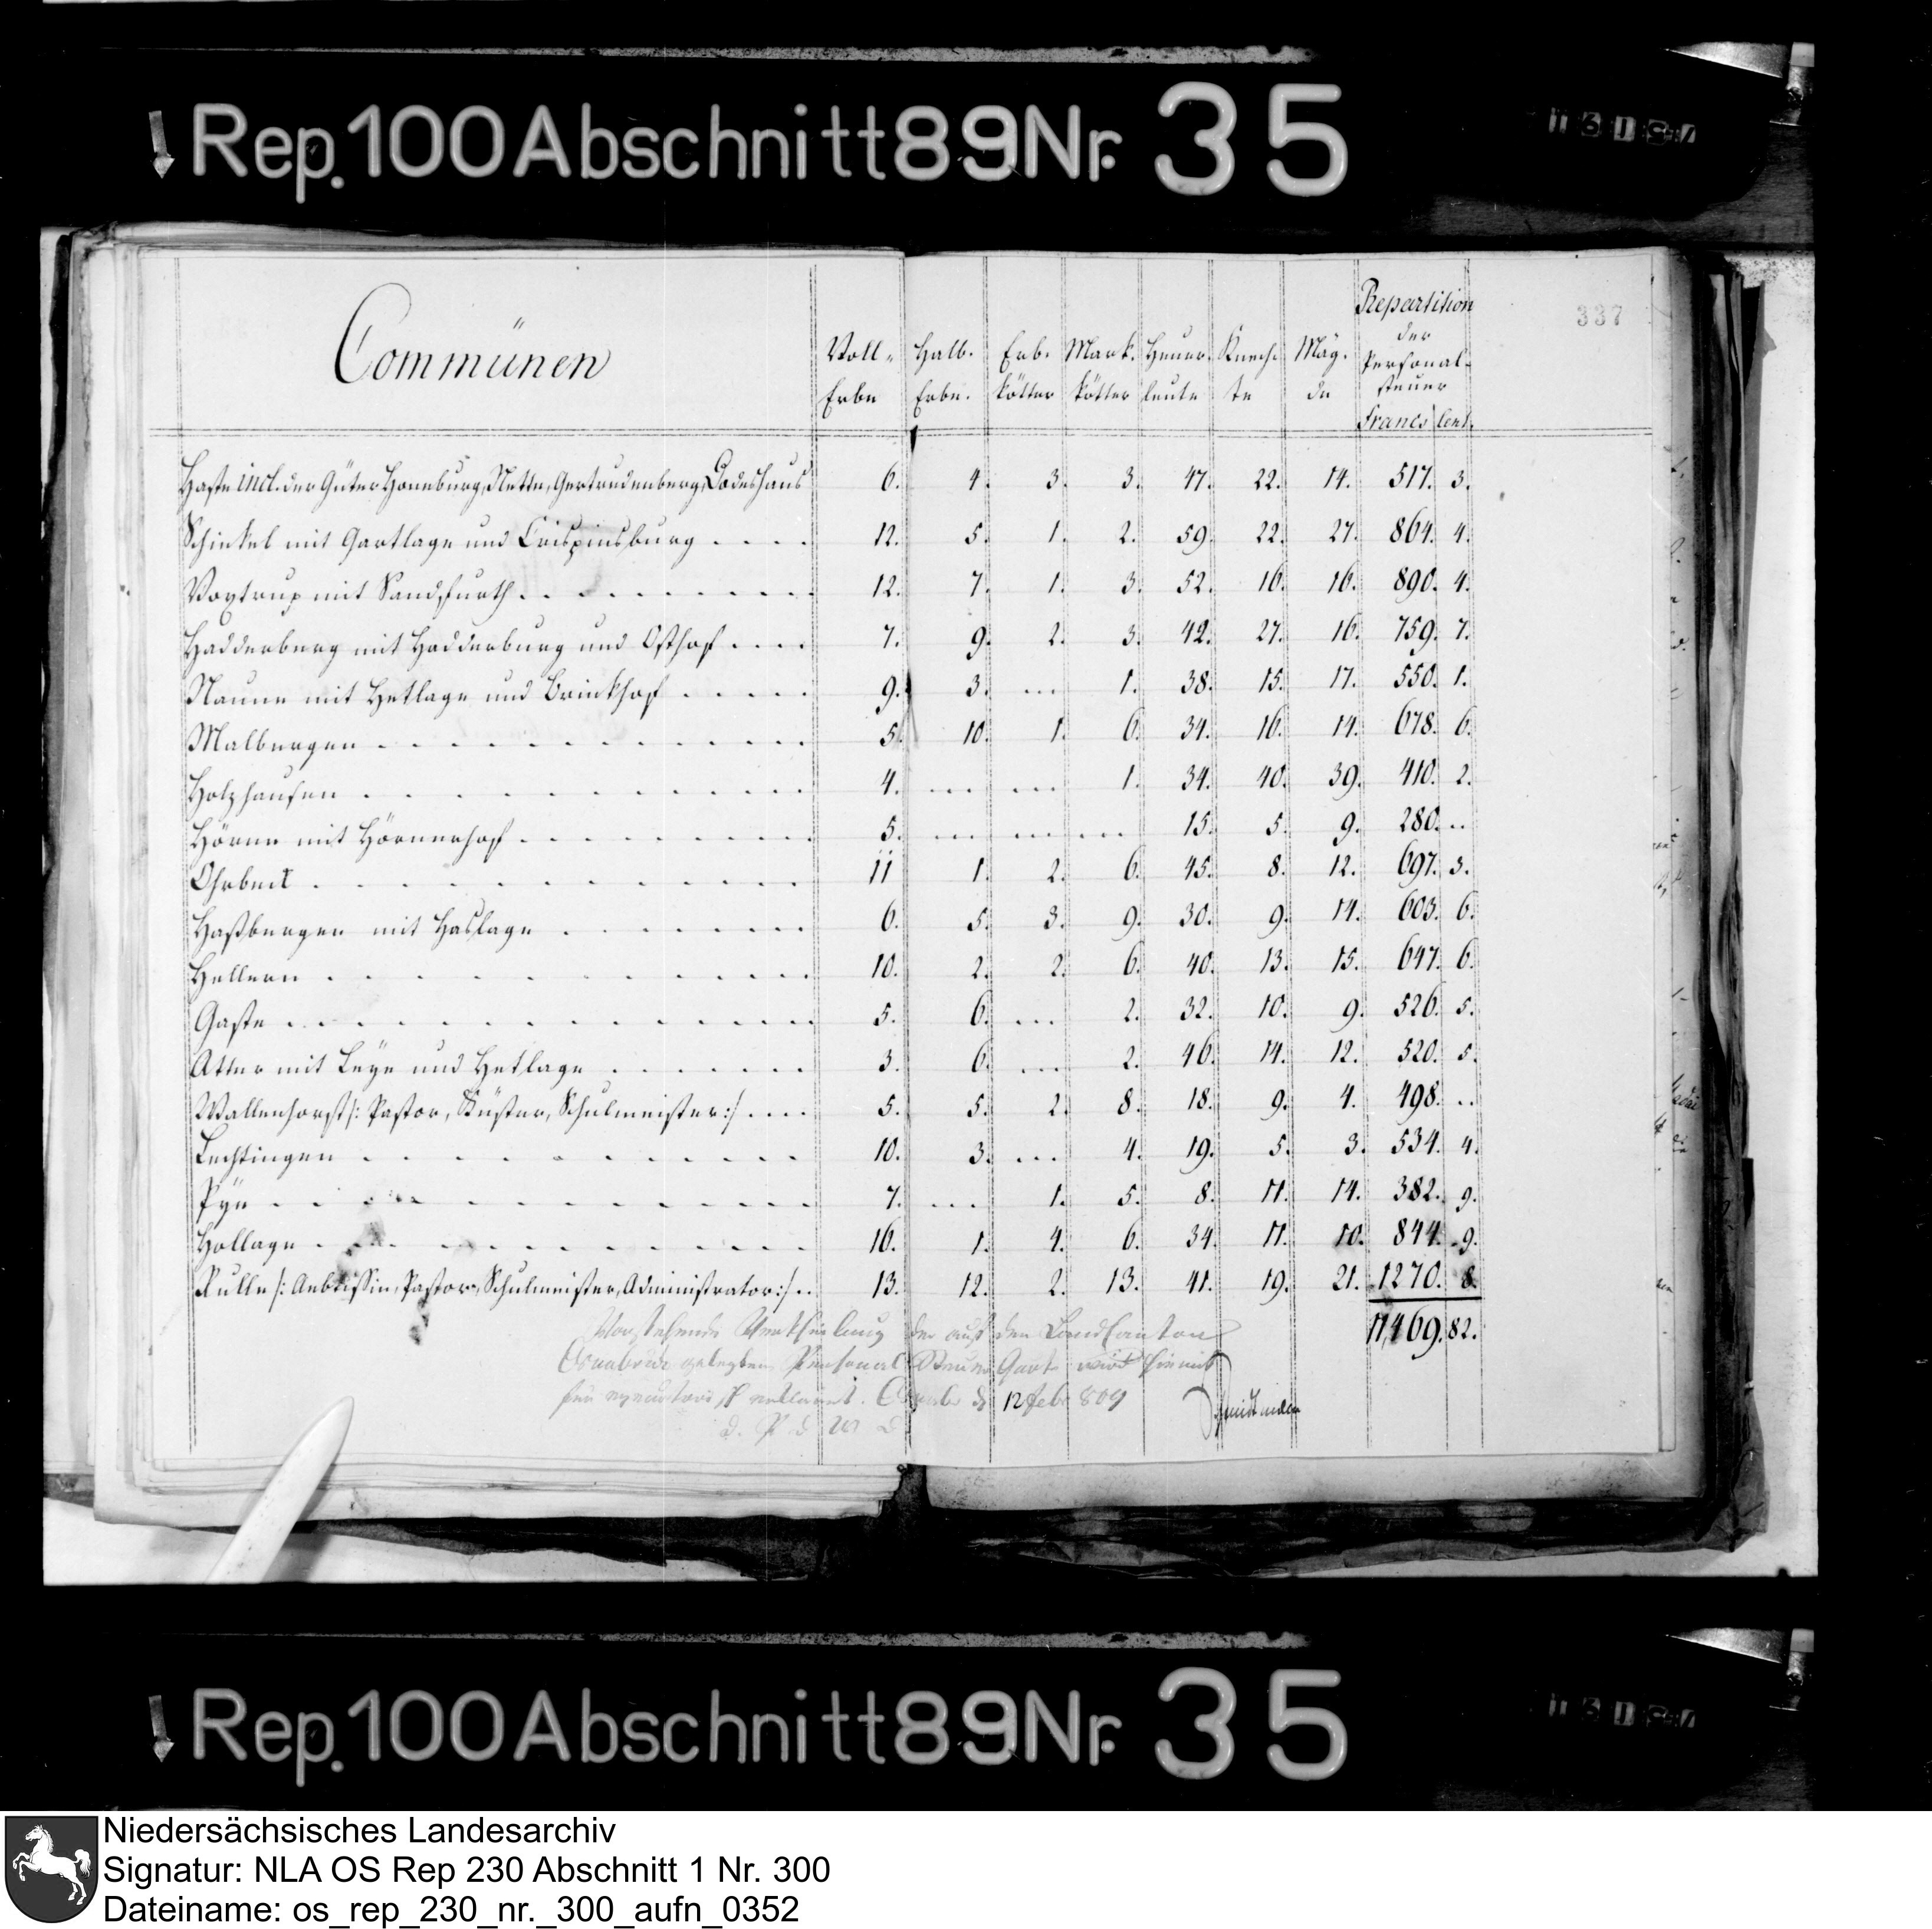 Rep. 100 Abschnitt 89 Nr. 35
337
Communen
Voll- Halb- Erb- Mark- Heuer- Knech- Mäg- Repartition der Personal-steuer
Erbe Erbe. kötter kötter leute te de Francs Cent.
Haste incl. der Güter Honeburg, Nette, Gertrudenberg, Dodeshaus 6. 4. 3. 3. 47. 22. 14. 517. 3.
Schinkel mit Gartlage und Crispinsburg .... 12. 5. 1. 2. 59. 22. 27. 864. 4.
Voxtrup mit Sandfurth ......... 12. 7. 1. 3. 52. 16. 16. 890. 4.
Hadderberg mit Hadderburg und Osthof .... 7. 9. 2. 3. 42. 27. 16. 759. 7.
Naune mit Hetlage und Brinkhof ..... 9. 3. ... 1. 38. 15. 17. 550. 1.
Malbergen ............ 5. 10. 1. 6. 34. 16. 14. 678. 6.
Holzhausen ............ 4. ... ... 1. 34. 40. 39. 410. 2.
Hörne mit Hörnerhof ........ 5. ... ... ... 15. 5. 9. 280. ..
Ohrbeck ............ 11 1. 2. 6. 45. 8. 12. 697. 3.
Haßbergen mit Haslage ....... 6. 5. 3. 9. 30. 9. 14. 603. 6.
Hellern ............ 10. 2. 2. 6. 40. 13. 15. 647. 6.
Gaste ............. 5. 6. ... 2. 32. 10. 9. 526. 5.
Atter mit Leye und Hetlage ....... 3. 6. ... 2. 46. 14. 12. 520. 5.
Wallenhorst /: Pastor, Küster, Schulmeister :/ .... 5. 5. 2. 8. 18. 9. 4. 498. ..
Lechtingen ............ 10. 3. ... 4. 19. 5. 3. 534. 4.
Pye ............. 7. ... 1. 5. 8. 11. 14. 382. 9.
Hollage ............ 16. 1. 4. 6. 34. 11. 10. 844. 9.
Rulle /: Aebtissin, Pastor, Schulmeister, Administrator :/ .. 13. 12. 2. 13. 41. 19. 21. 1270. 8.
11,469. 82.
Vorstehende Vertheilung der auf den Land Canton
Osnabrück gelegten Personal Steuer Quote wird hiemit
für executorisch erklaert. den 12 Febr 809
Rep. 100 Abschnitt 89 Nr. 35
Niedersächsisches Landesarchiv
Signatur: NLA OS Rep 230 Abschnitt 1 Nr. 300
Dateiname: os_rep_230_nr._300_aufn_0352